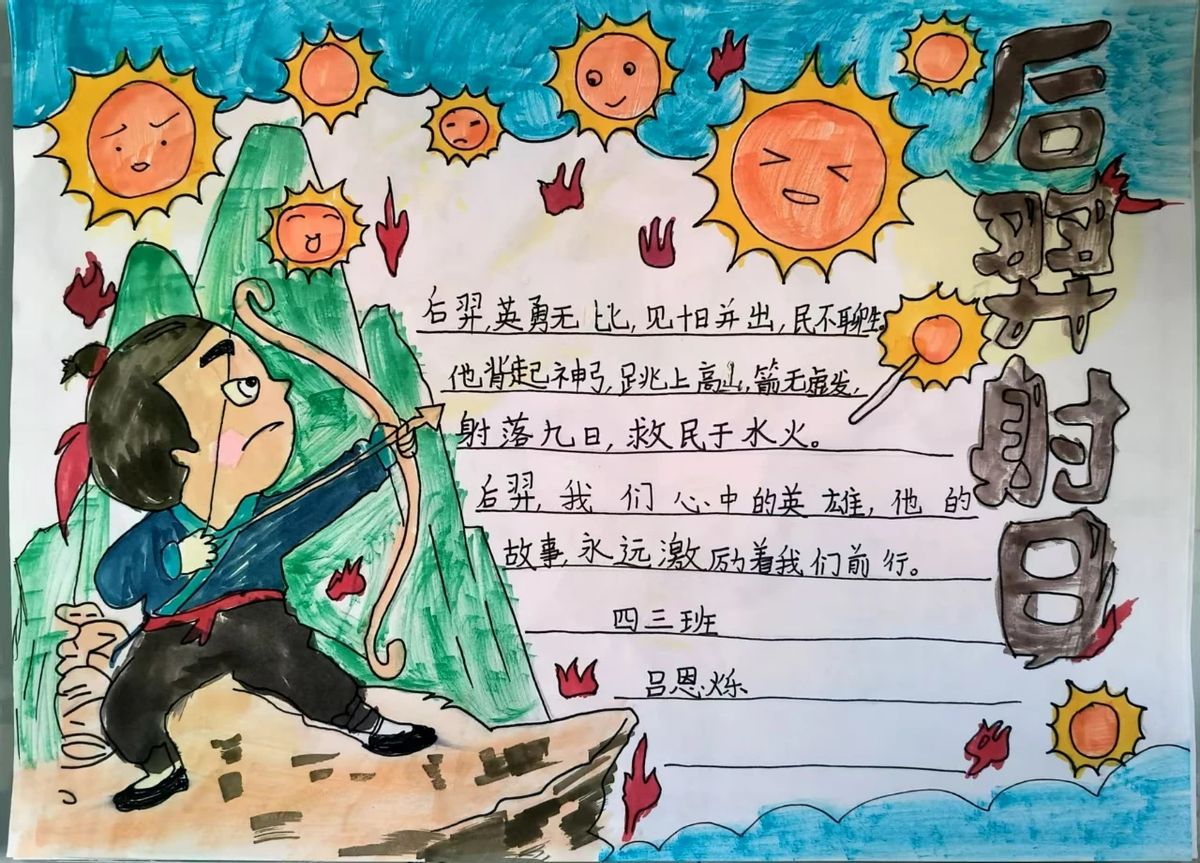 后羿射日
后羿,英勇无比,见十日并出,民不聊生。
他背起神弓,跳上高山,箭无虚发,
射落九日,救民于水火。
后羿,我们心中的英雄,他的
故事,永远激励着我们前行。
四三班
吕恩烁